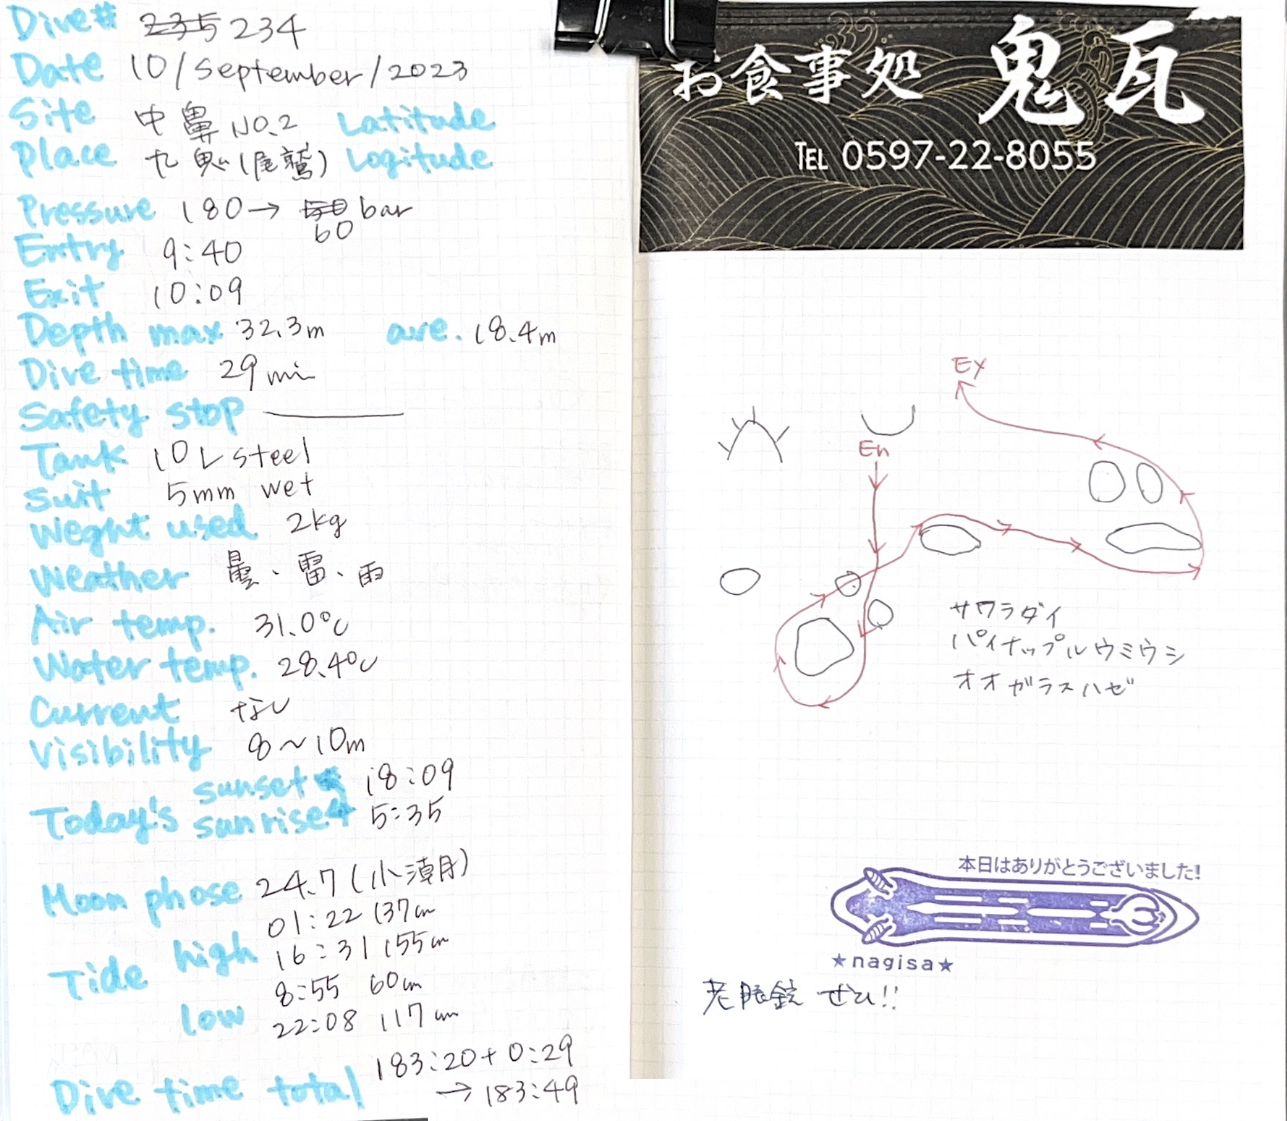 Dive# 235 234
Date 10/September/2023
Site 中鼻 NO.2 Latitude
Place 九鬼(尾鷲) Logitude
Pressure 180→ 50 bar
60
Entry 9:40
Exit 10:09
Depth max 32.3m ave. 18.4m
Dive time 29 min
Safety stop
Tank 10L steel
Suit 5mm wet
Weght used 2kg
Weather 曇、雷、雨
Air temp. 31.0℃
Water temp. 28.4℃
Current なし
Visibility 8~10m
Today's sunset 18:09
sunrise 5:35
Moon phose 24.7(小潮月)
Tide high 01:22 137cm
16:31 155cm
low 8:55 60cm
22:08 117cm
Dive time total 183:20+0:29
→183:49
お食事処 鬼瓦
TEL 0597-22-8055
Ex
En
サワラダイ
パイナップルウミウシ
オオガラスハゼ
本日はありがとうございました!
★nagisa★
老眼鏡 ぜひ!!